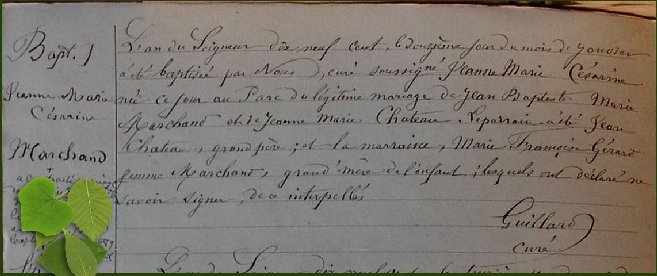 Bapt. 1
Jeanne Marie
Césarine
Marchand
L'an du Seigneur dix neuf cent, le douzième jour du mois de janvier
a été baptisée par Nous, curé soussigné Jeanne Marie Césarine
née ce jour au Parc du légitime mariage de Jean Baptiste Marie
Marchand et de Jeanne Marie Chateau. Le parrain a été Jean
Chateau, grand père ; et la marraine, Marie Françoise Gérard
femme Marchand, grand'mère de l'enfant ; lesquels ont déclaré ne
savoir signer, de ce interpellés
Guillard
curé
L'an du Seigneur dix neuf cent